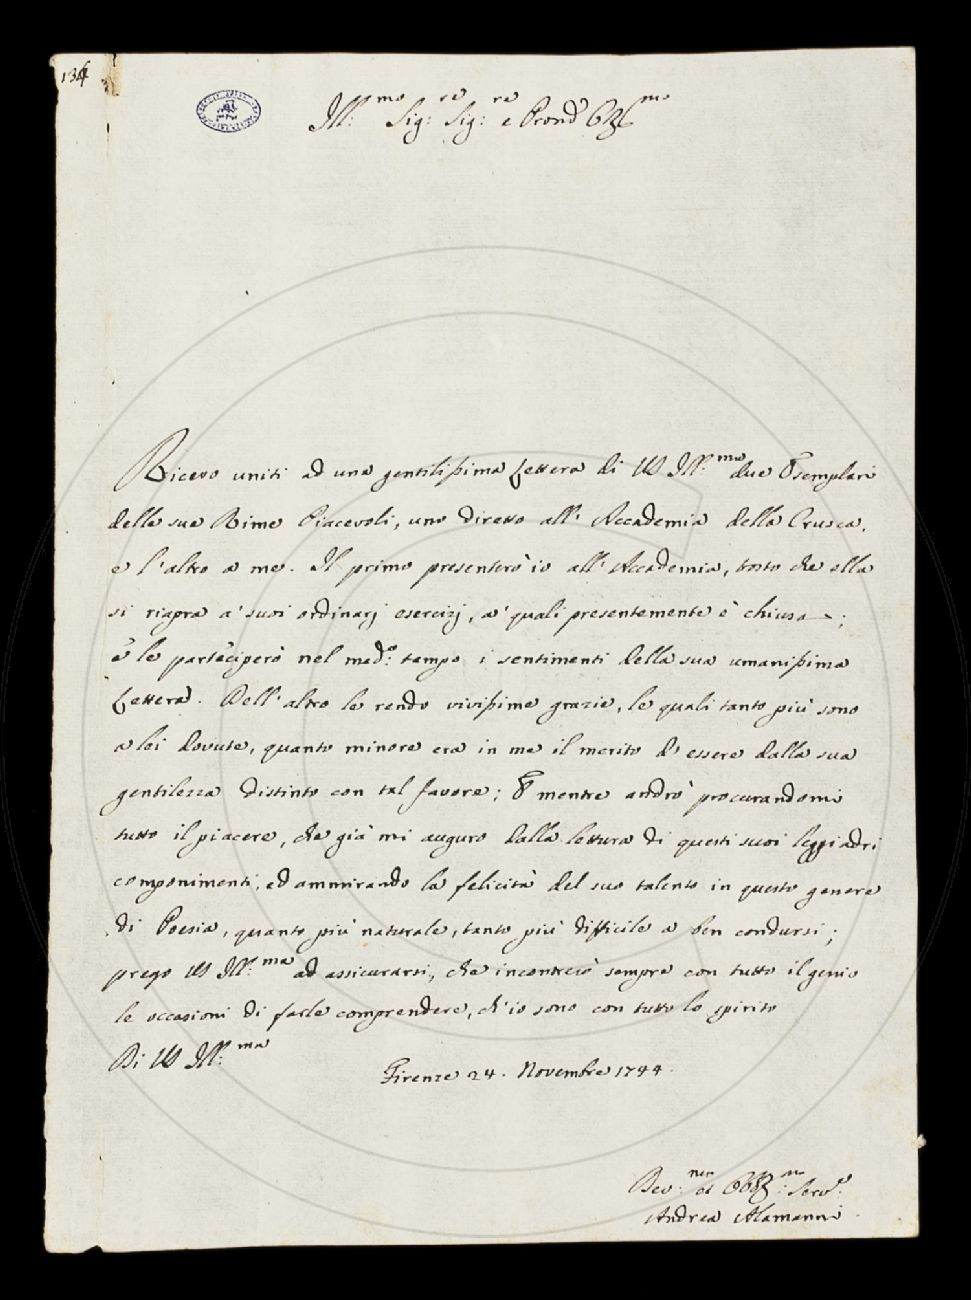 134
Ill:mo Sig:re Sig:re e Pron
Ricevo uniti ad una gentilissima Lettera di VS Ill:ma due Esemplari
delle sue Rime Piacevoli, uno diretto all' Accademia della Crusca,
e l'altro a me. Il primo presenterò io all' Accademia, tosto che ella
si riapra a' suoi ordinarj esercizj, a' quali presentemente è chiusa;
e le parteciperò nel med:o tempo i sentimenti della sua umanissima
Lettera. Dell' altro le rendo vivissime grazie, le quali tanto più sono
a lei dovute, quanto minore era in me il merito d' essere dalla sua
gentilezza distinto con tal favore; E mentre andrò procurandomi
tutto il piacere, che già mi auguro dalla lettura di questi suoi leggiadri
componimenti, ed ammirando la felicità del suo talento in questo genere
di Poesia, quanto più naturale, tanto più difficile a ben condursi;
prego VS Ill:ma ad assicurarsi, che incontrerò sempre con tutto il genio
le occasioni di farle comprendere, ch' io sono con tutto lo spirito
Di VS Ill:ma
Firenze 24. Novembre 1744.
Dev:mo ed Obb: Serv:e
Andrea Alamanni